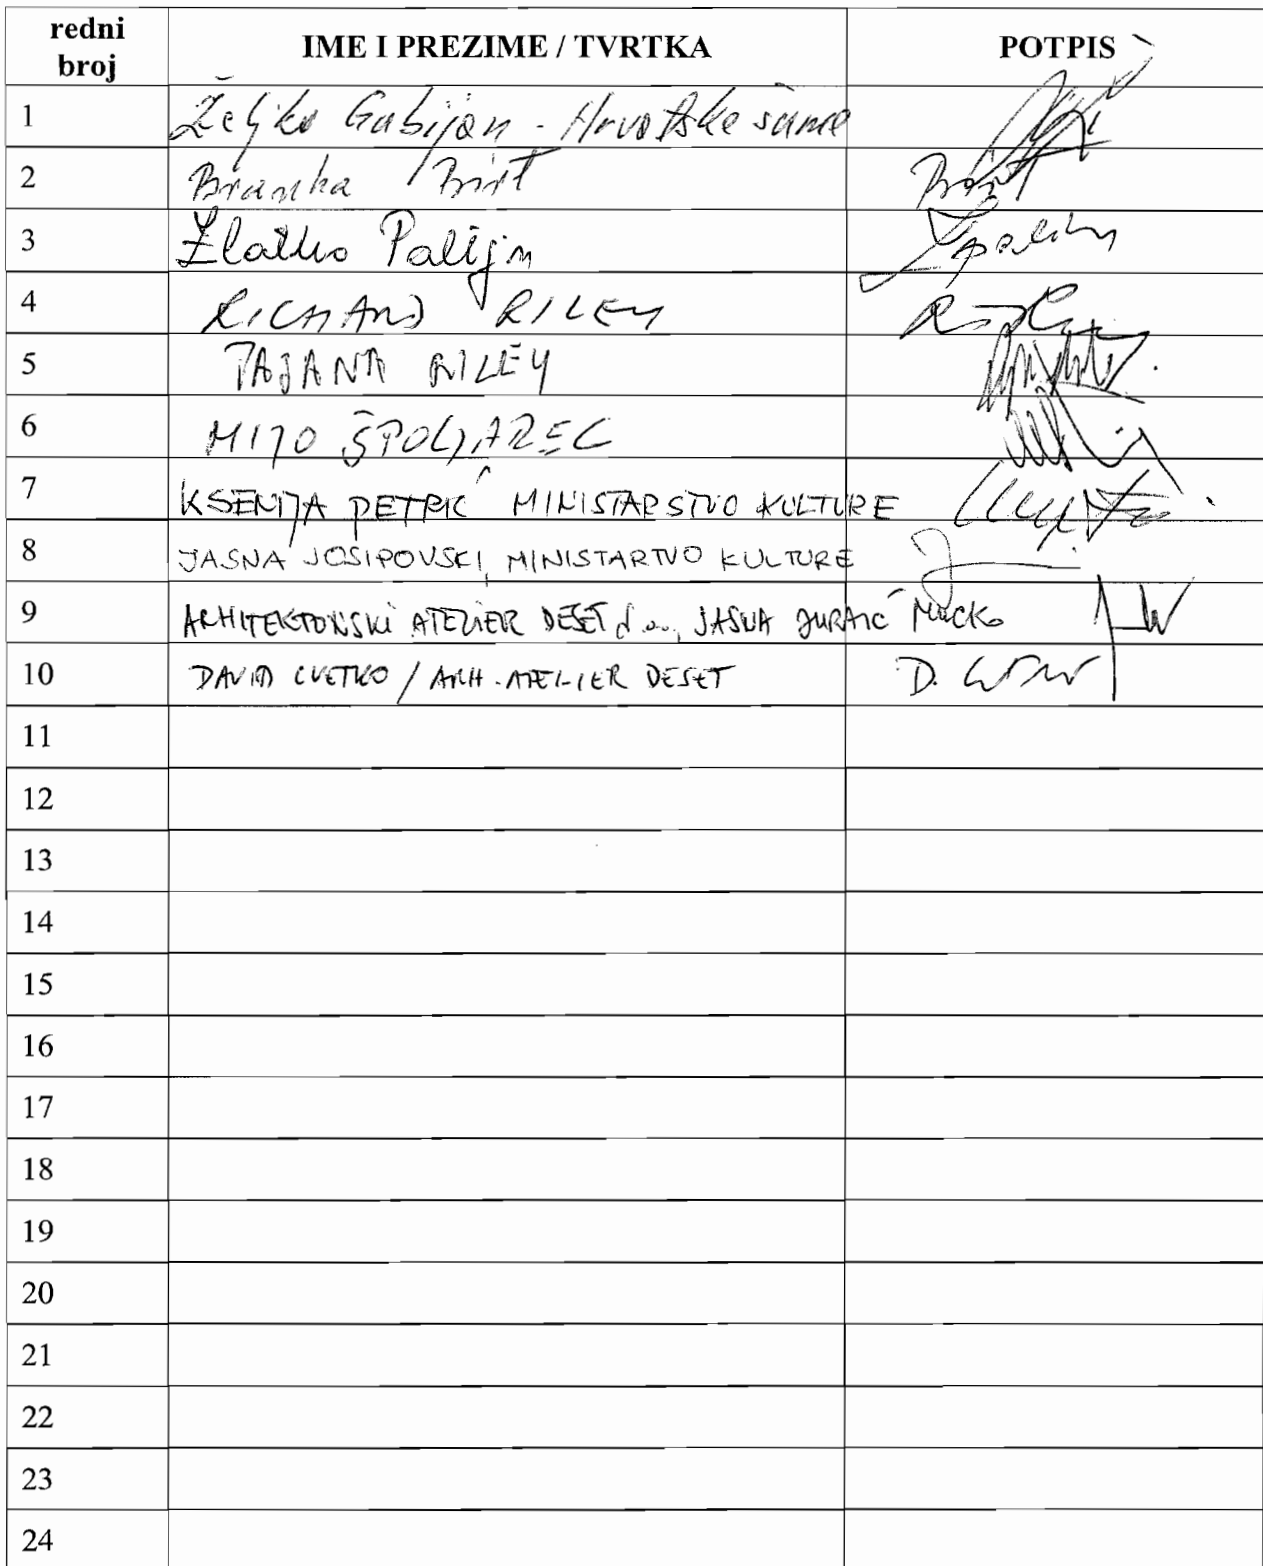 redni broj IME I PREZIME / TVRTKA POTPIS
1 Željko Gubijan - Hrvatske šume
2 Branka Birt Birt
3 Zlatko Palijan
4 RICHARD RILEY
5 TAJANA RILEY
6 MIJO ŠPOLJAREC
7 KSENIJA PETRIĆ MINISTARSTVO KULTURE
8 JASNA JOSIPOVSKI, MINISTARTVO KULTURE
9 ARHITEKTONSKI ATELIER DESET d.o.o., JASNA JURAIĆ MUCKO
10 DAVID CVETKO / ARH. ATELIER DESET D.
11
12
13
14
15
16
17
18
19
20
21
22
23
24